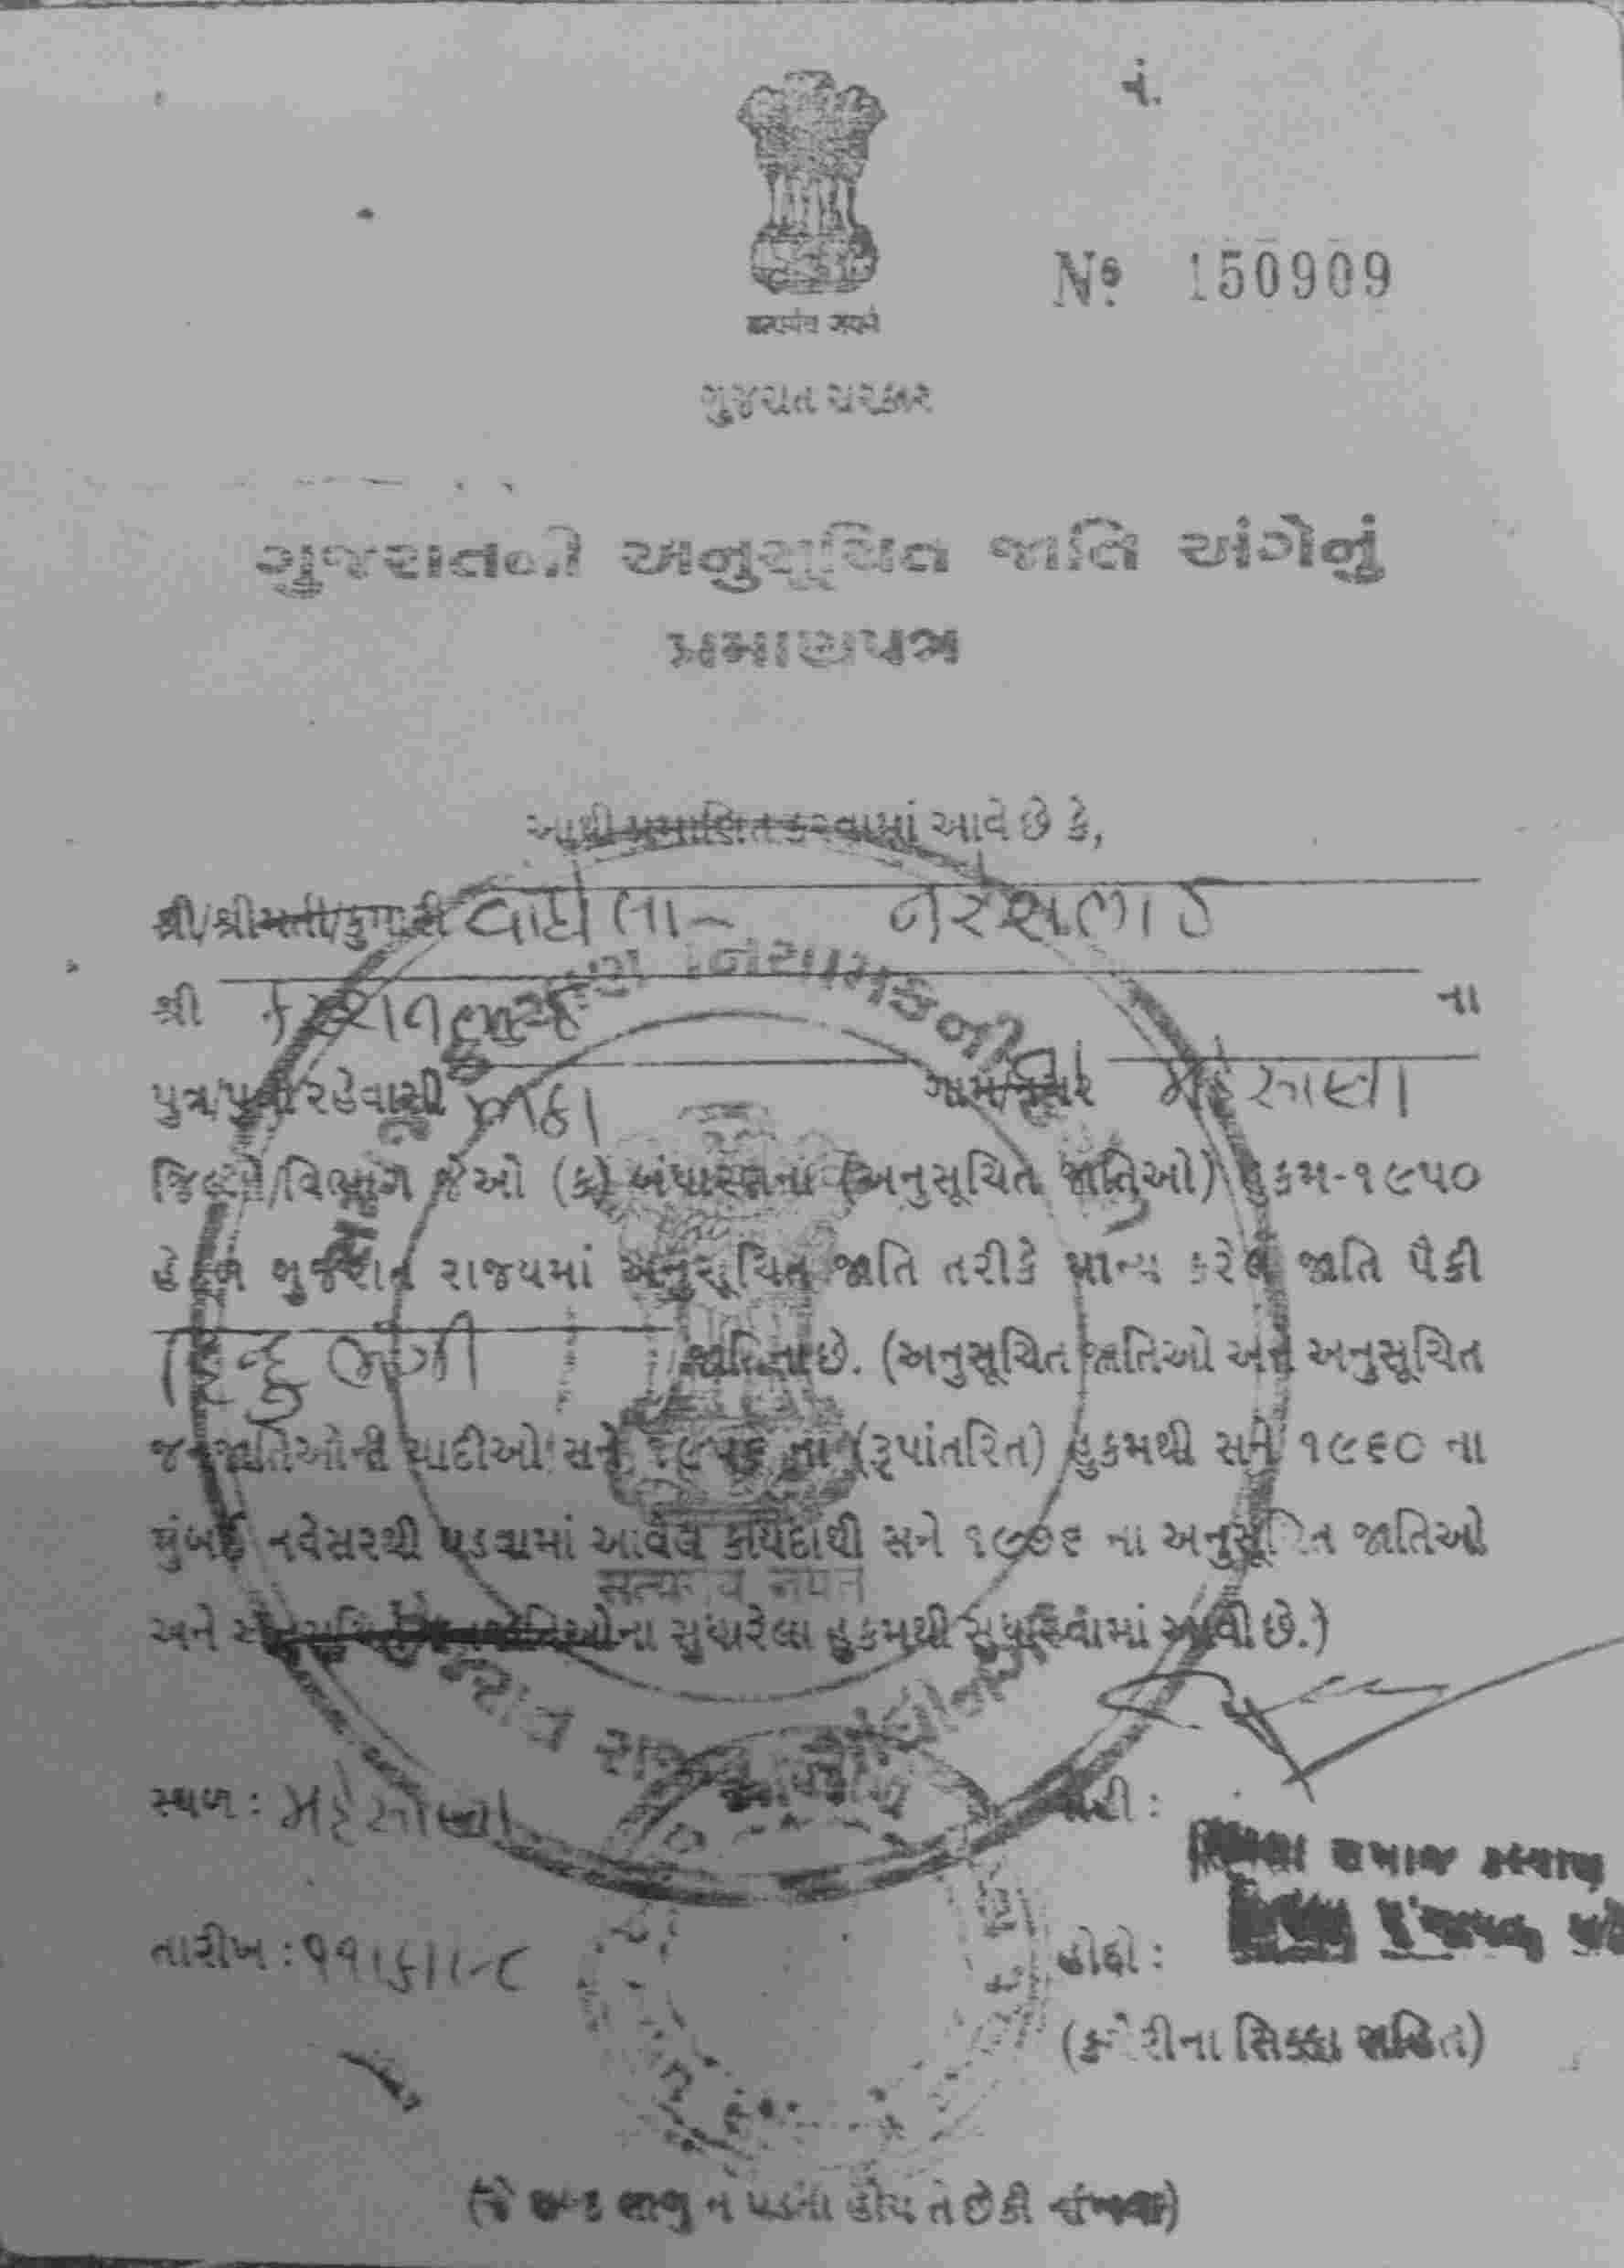 નં.
Nº 150909
ગુજરાત સરકાર
ગુજરાતની અનુસૂચિત જાતિ અંગેનું
પ્રમાણપત્ર
આથી પ્રમાણિત કરવામાં આવે છે કે,
શ્રી/શ્રીમતી/કુમારી વાઘેલા નરેસભાઈ
શ્રી ના
પુત્ર/પુત્રી રહેવાસી ગામ/શહેર મહેસાણા
જિલ્લો/વિભાગ જેઓ (ક) બંધારણના (અનુસૂચિત જાતિઓ) હુકમ-૧૯૫૦
હેઠળ ગુજરાત રાજ્યમાં અનુસૂચિત જાતિ તરીકે માન્ય કરેલ જાતિ પૈકી
હિન્દુ ભંગી જાતિના છે. (અનુસૂચિત જાતિઓ અને અનુસૂચિત
જનજાતિઓની યાદીઓ સને ૧૯૫૬ ના (રૂપાંતરિત) હુકમથી સને ૧૯૬૦ ના
મુંબઈ નવેસરથી ઘડવામાં આવેલ કાયદાથી સને ૧૯૭૬ ના અનુસૂચિત જાતિઓ
અને ના સુધારેલા હુકમથી સુધારવામાં આવી છે.)
સત્યમેવ જયતે
ગુજરાત રાજ્ય
સ્થળ : મહેસાણા
તારીખ :
હોદ્દો :
સમાજ કલ્યાણ
(કચેરીના સિક્કા સહિત)
(જે શબ્દ લાગુ ન પડતા હોય તે છેકી નાંખવા)